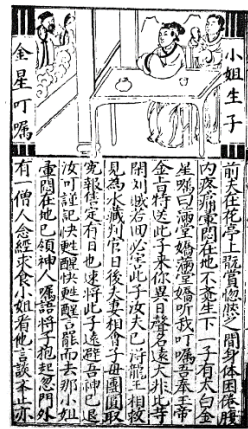 小姐生子
金星叮囑
前夫在花亭上翫賞惚然之間身体困倦腹
內疼痛暈悶在地不竟生下一子有太白金
星囑曰滿堂嬌滿堂嬌听我叮囑吾奉玉帝
金旨特送此子來你異日聲名遠大非比等
閑刘賊若回必害此子汝夫已淂龍王相救
見為水藏判官日後夫妻相會子母團圓取
寃報售定有日也速將此子遠避吾神已退
汝可謹記快甦醒快甦醒言罷而去那小姐
暈悶在地已領神人囑語將子抱起忽門外
有一僧人念經求食小姐看他言談不止亦